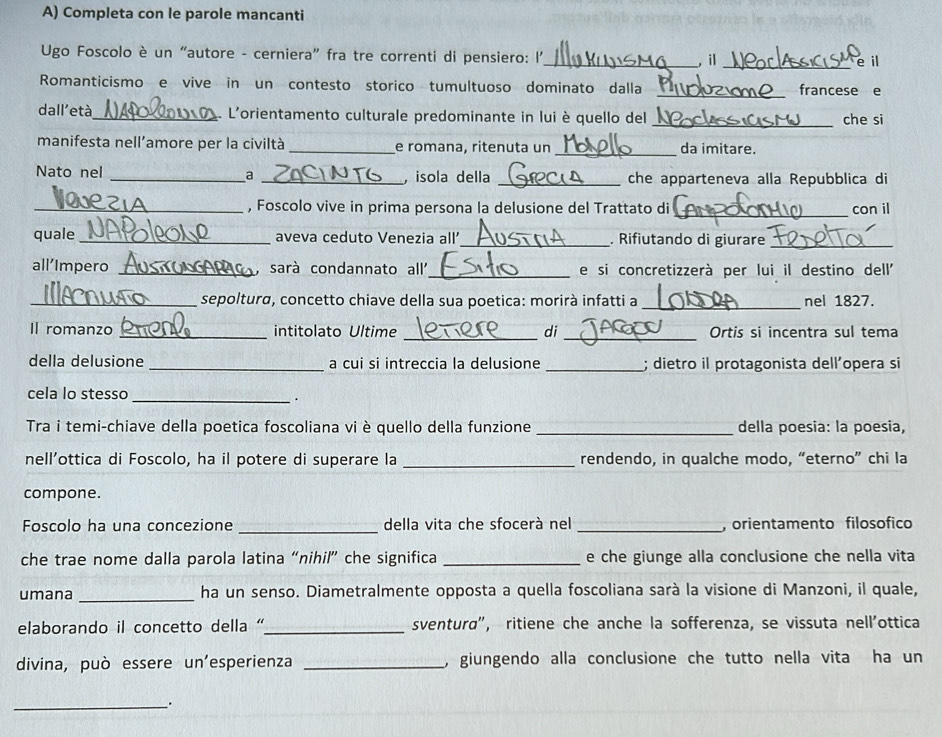 A) Completa con le parole mancanti
Ugo Foscolo è un “autore - cerniera” fra tre correnti di pensiero: l’ IlluMINISMO, il NeoclAssicisMo e il
Romanticismo e vive in un contesto storico tumultuoso dominato dalla francese e
dall’età NAPOleonica. L’orientamento culturale predominante in lui è quello del che si
manifesta nell’amore per la civiltà ____________e romana, ritenuta un Modello da imitare.
Nato nel ____________a ZACINTO, isola della GreciA che apparteneva alla Repubblica di
VeneZIA, Foscolo vive in prima persona la delusione del Trattato di CAmpoforMIO con il
quale NAPoleoNe aveva ceduto Venezia all’ AUSTRIA. Rifiutando di giurare Fedeltá
all’Impero sarà condannato all’ ESilio e si concretizzerà per lui il destino dell’
sepoltura, concetto chiave della sua poetica: morirà infatti a LONDRA nel 1827.
Il romanzo intitolato Ultime leTTere di JAcopo Ortis si incentra sul tema
della delusione ____________ a cui si intreccia la delusione ____________; dietro il protagonista dell’opera si
cela lo stesso ____________.
Tra i temi-chiave della poetica foscoliana vi è quello della funzione ____________ della poesia: la poesia,
nell’ottica di Foscolo, ha il potere di superare la ____________ rendendo, in qualche modo, “eterno” chi la
compone.
Foscolo ha una concezione ____________ della vita che sfocerà nel ____________, orientamento filosofico
che trae nome dalla parola latina “nihil” che significa ____________ e che giunge alla conclusione che nella vita
umana ____________ ha un senso. Diametralmente opposta a quella foscoliana sarà la visione di Manzoni, il quale,
elaborando il concetto della “____________ sventura”, ritiene che anche la sofferenza, se vissuta nell’ottica
divina, può essere un’esperienza ____________, giungendo alla conclusione che tutto nella vita ha un
____________.